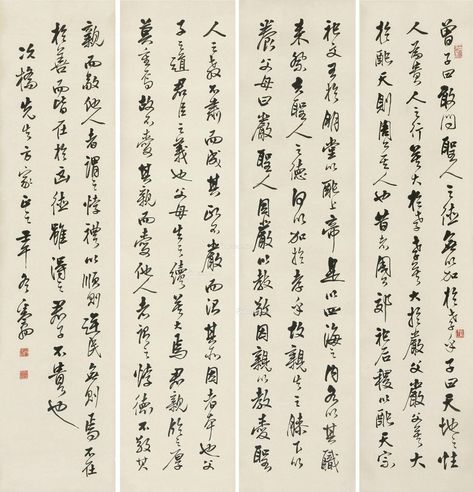 曾子曰敢問聖人之德無以加於孝乎子曰天地之性
人為貴人之行莫大於孝孝莫大於嚴父嚴父莫大
於配天則周公其人也昔者周公郊祀后稷以配天宗
祀文王於明堂以配上帝是以四海之內各以其職
来祭夫聖人之德何以加於孝乎故親生之膝下以
養父母日嚴聖人因嚴以教敬因親以教愛聖
人之教不肅而成其政不嚴而治其所因者本也父
子之道君臣之義也父母生之續莫大焉君親臨之厚
莫重焉故不愛其親而愛他人者謂之悖德不敬其
親而敬他人者謂之悖禮以順則逆民無則焉不在
於善而皆在於凶德雖得之君子不貴也
次橘先生方家正之